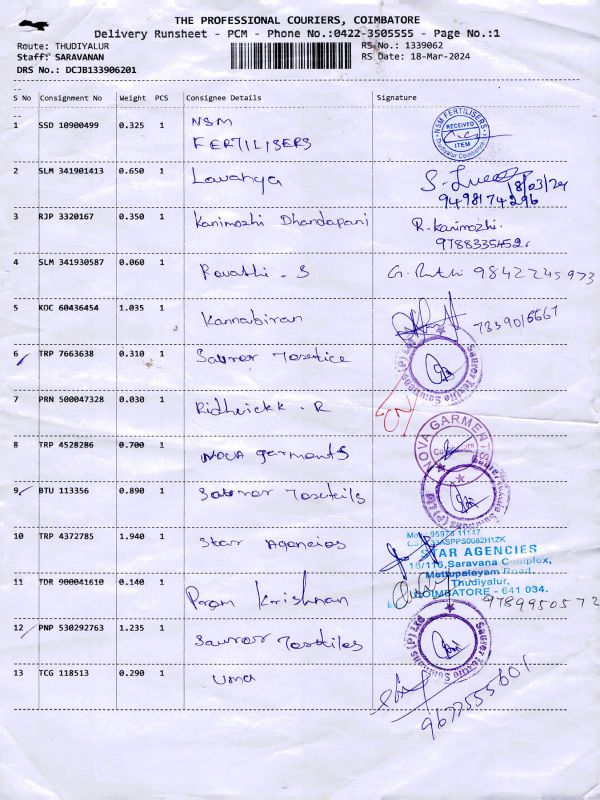 THE PROFESSIONAL COURIERS, COIMBATORE
Delivery Runsheet - PCM - Phone No.:0422-3505555 - Page No.:1
Route: THUDIYALUR
RS No.: 1339062
Staff: SARAVANAN
RS Date: 18-Mar-2024
DRS No.: DCJB133906201
S No Consignment No Weight PCS Consignee Details Signature
1 SSD 10900499 0.325 1 NSM
FERTILISERS
NSM FERTILISERS
RECEIVED
ITEM
Thudiyalur Coimbatore
2 SLM 341901413 0.650 1 Lavanya
18/03/24
9498174296
3 RJP 3320167 0.350 1 Kanimozhi Dhandapani R. Kanimozhi
9788335452
4 SLM 341930587 0.060 1 Revathi - S 9842245973
5 KOC 60436454 1.035 1 Kannabiran
6 TRP 7663638 0.310 1
Saurer Textile Solutions (P) Ltd
7 PRN 500047328 0.030 1 Ridhwickk . R
8 TRP 4528286 0.700 1 NOVA garments
NOVA GARMENTS
9 BTU 113356 0.890 1
Saurer Textile Solutions (P) Ltd
10 TRP 4372785 1.940 1 Star Agencies
STAR AGENCIES
18/116, Saravana Complex,
Mettupalayam Road,
Thudiyalur,
COIMBATORE - 641 034.
11 TDR 900041610 0.140 1 Prem Krishnan 9789950572
12 PNP 530292763 1.235 1
Saurer Textile Solutions (P) Ltd
13 TCG 118513 0.290 1 Uma
9677555601